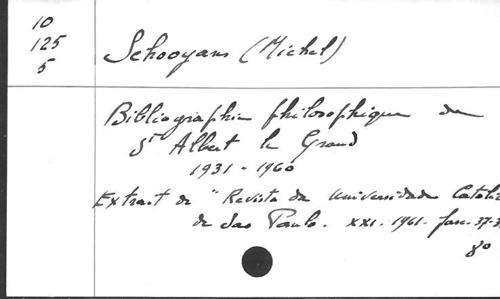 10
125
5
Schooyans (Michel)
Bibliographie philosophique de
St Albert le Grand
1931 - 1960
Extrait de "Revista da Universidade Catoli
de Sao Paulo. XXI. 1961. fasc. 37-3
80